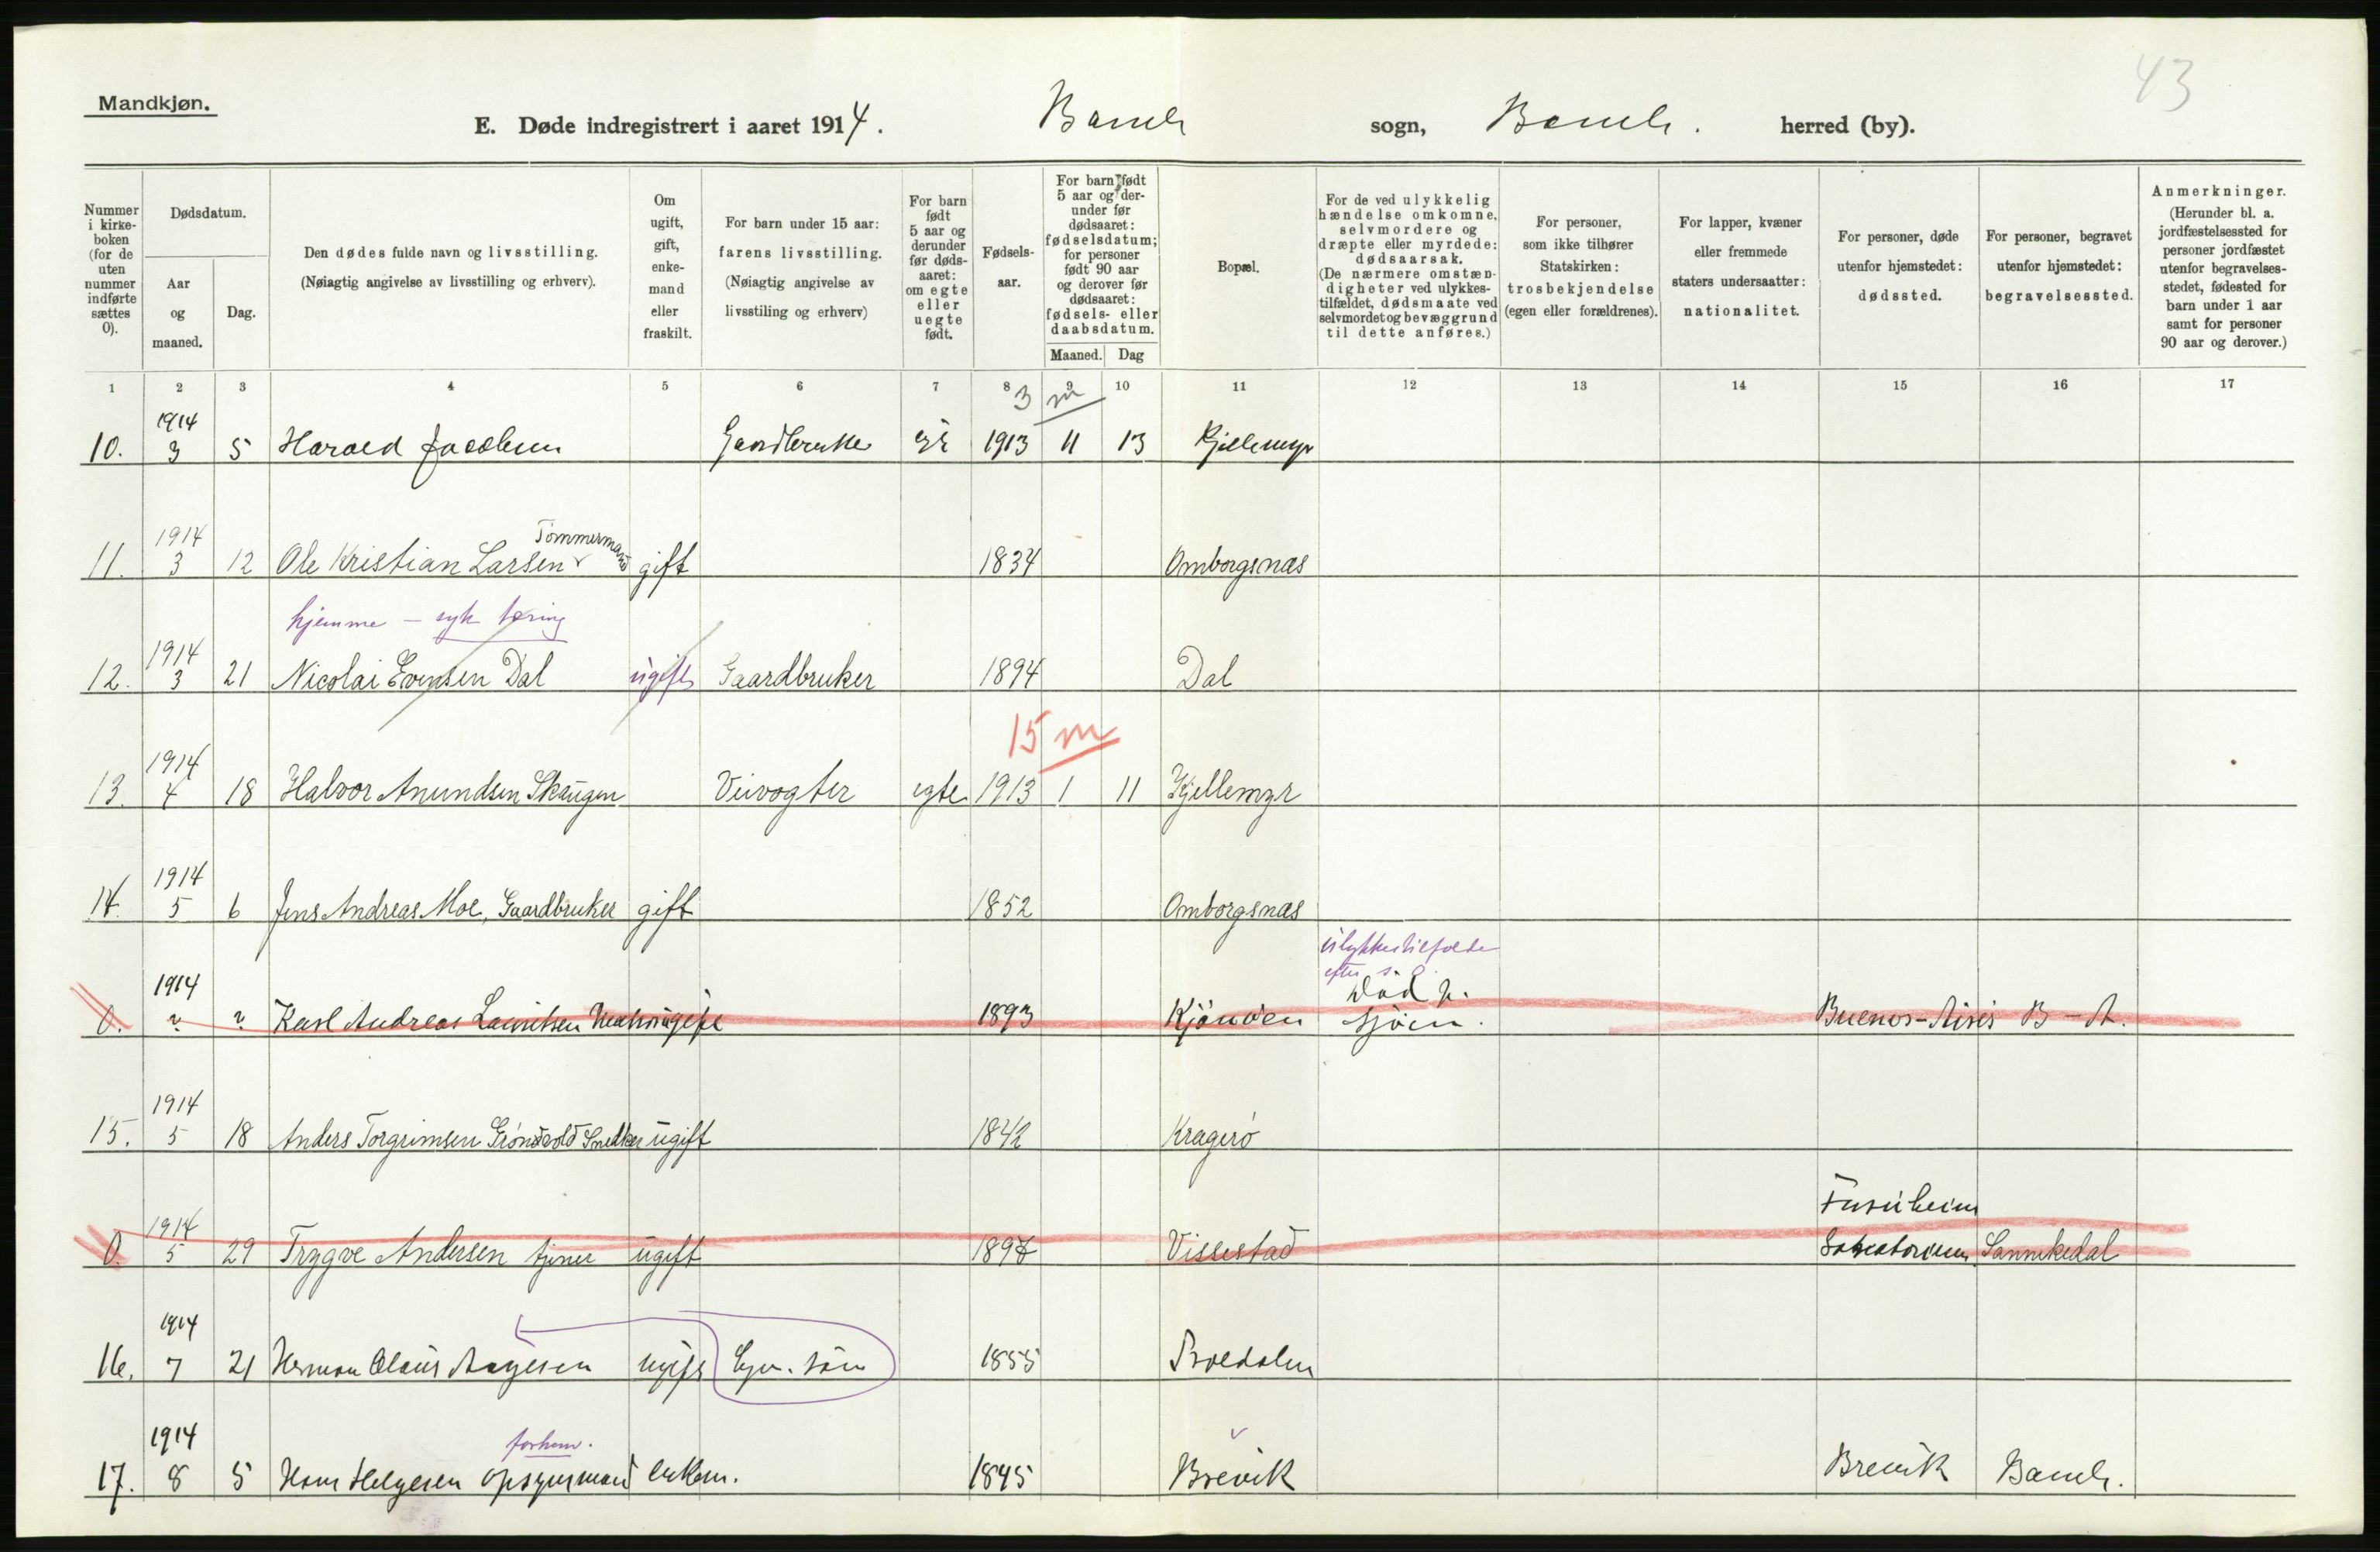 43
Mandkjøn.
E. Døde indregistrert i aaret 1914. Bamle sogn, Bamle. herred (by).
Nummer i kirkeboken (for de uten nummer indførte sættes 0).
Dødsdatum.
Aar og maaned.
Dag.
Den dødes fulde navn og livsstilling.
(Nøiagtig angivelse av livsstilling og erhverv).
Om ugift, gift, enkemand eller fraskilt.
For barn under 15 aar: farens livsstilling.
(Nøiagtig angivelse av livsstiling og erhverv)
For barn født 5 aar og derunder før dødsaaret: om egte eller uegte født.
Fødselsaar.
For barn født 5 aar og derunder før dødsaaret: fødselsdatum; for personer født 90 aar og derover før dødsaaret: fødsels- eller daabsdatum.
Maaned. Dag
Bopæl.
For de ved ulykkelig hændelse omkomne, selvmordere og dræpte eller myrdede: dødsaarsak.
(De nærmere omstændigheter ved ulykkestilfældet, dødsmaate ved selvmordet og bevæggrund til dette anføres.)
For personer, som ikke tilhører Statskirken: trosbekjendelse (egen eller forældrenes).
For lapper, kvæner eller fremmede staters undersaatter: nationalitet.
For personer, døde utenfor hjemstedet: dødssted.
For personer, begravet utenfor hjemstedet: begravelsessted.
Anmerkninger.
(Herunder bl. a. jordfæstelsessted for personer jordfæstet utenfor begravelsesstedet, fødested for barn under 1 aar samt for personer 90 aar og derover.)
1 2 3 4 5 6 7 8 9 10 11 12 13 14 15 16 17
3 m
1914
10. 3 5 Harald Jacobsen Gaardbruker 1913 11 13 Kjellemyr
1914 Tømmermand
11. 3 12 Ole Kristian Larsen gift 1834 Omborgsnæs
hjemme – syk tæring
1914
12. 3 21 Nicolai Evensen Dal ugift Gaardbruker 1894 Dal
15 m
1914
13. 4 18 Halvor Anundsen Skaugen Veivogter egte 1913 1 11 Kjellemyr
1914
14. 5 6 Jens Andreas Moe, Gaardbruker gift 1852 Omborgsnæs
ulykkestilfælde
efter
1914 Død p.
0. ? ? Karl Andreas Lauritsen Matros ugift 1893 Kjönöen sjöen. Buenos-Aires B–A.
1914
15. 5 18 Anders Torgrimsen Grönsvold Snedker ugift 1842 Kragerö
1914 Furuheim
0. 5 29 Trygve Andersen tjener ugift 1897 Vissestad Sanatorium Sannikedal
1914
16. 7 21 Herman Olaus Aagesen ugift 1855
1914 forhenv.
17. 8 5 Hans Helgesen Opsynsmand enkem. 1845 Brevik Brevik Bamle.